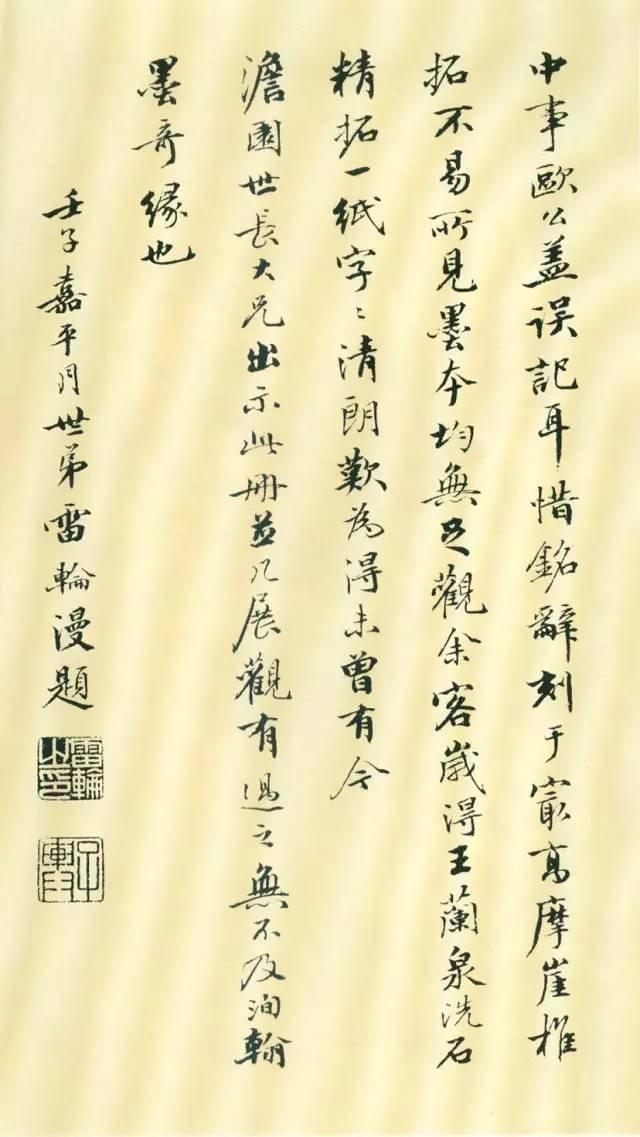 中事歐公盖误記耳惜銘辭刻于寂高摩崖椎
拓不易所見墨本均無足觀余客歲得王蘭泉洗石
精拓一紙字〻清朗歎為得未曾有今
澹園世長大兄出示此冊並几展觀有過之無不及洵翰
墨奇緣也
壬子嘉平月世弟雷輪漫題
雷輪
之印